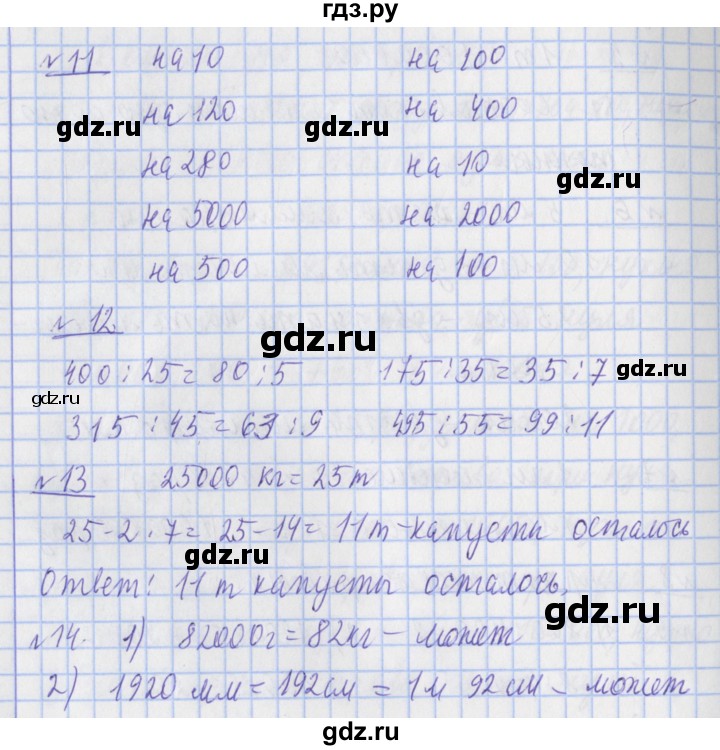 гдз.ру
№11 на 10 на 100
на 120 на 400
gdz.ru gdz.ru
на 280 на 10
gdz.ru
на 5000 на 2000
на 500 на 100
№12.
gdz.ru
400 : 25 = 80 : 5 175 : 35 = 35 : 7
gdz.ru
gdz.ru
315 : 45 = 63 : 9 495 : 55 = 99 : 11
№13 25000 кг = 25 т
25 - 2 · 7 = 25 - 14 = 11 т - капусты осталось
gdz.ru gdz.ru
Ответ: 11 т капусты осталось.
gdz.ru
№14. 1) 82000 г = 82 кг - может
2) 1920 мм = 192 см = 1 м 92 см - может
gdz.ru gdz.ru
gdz.ru